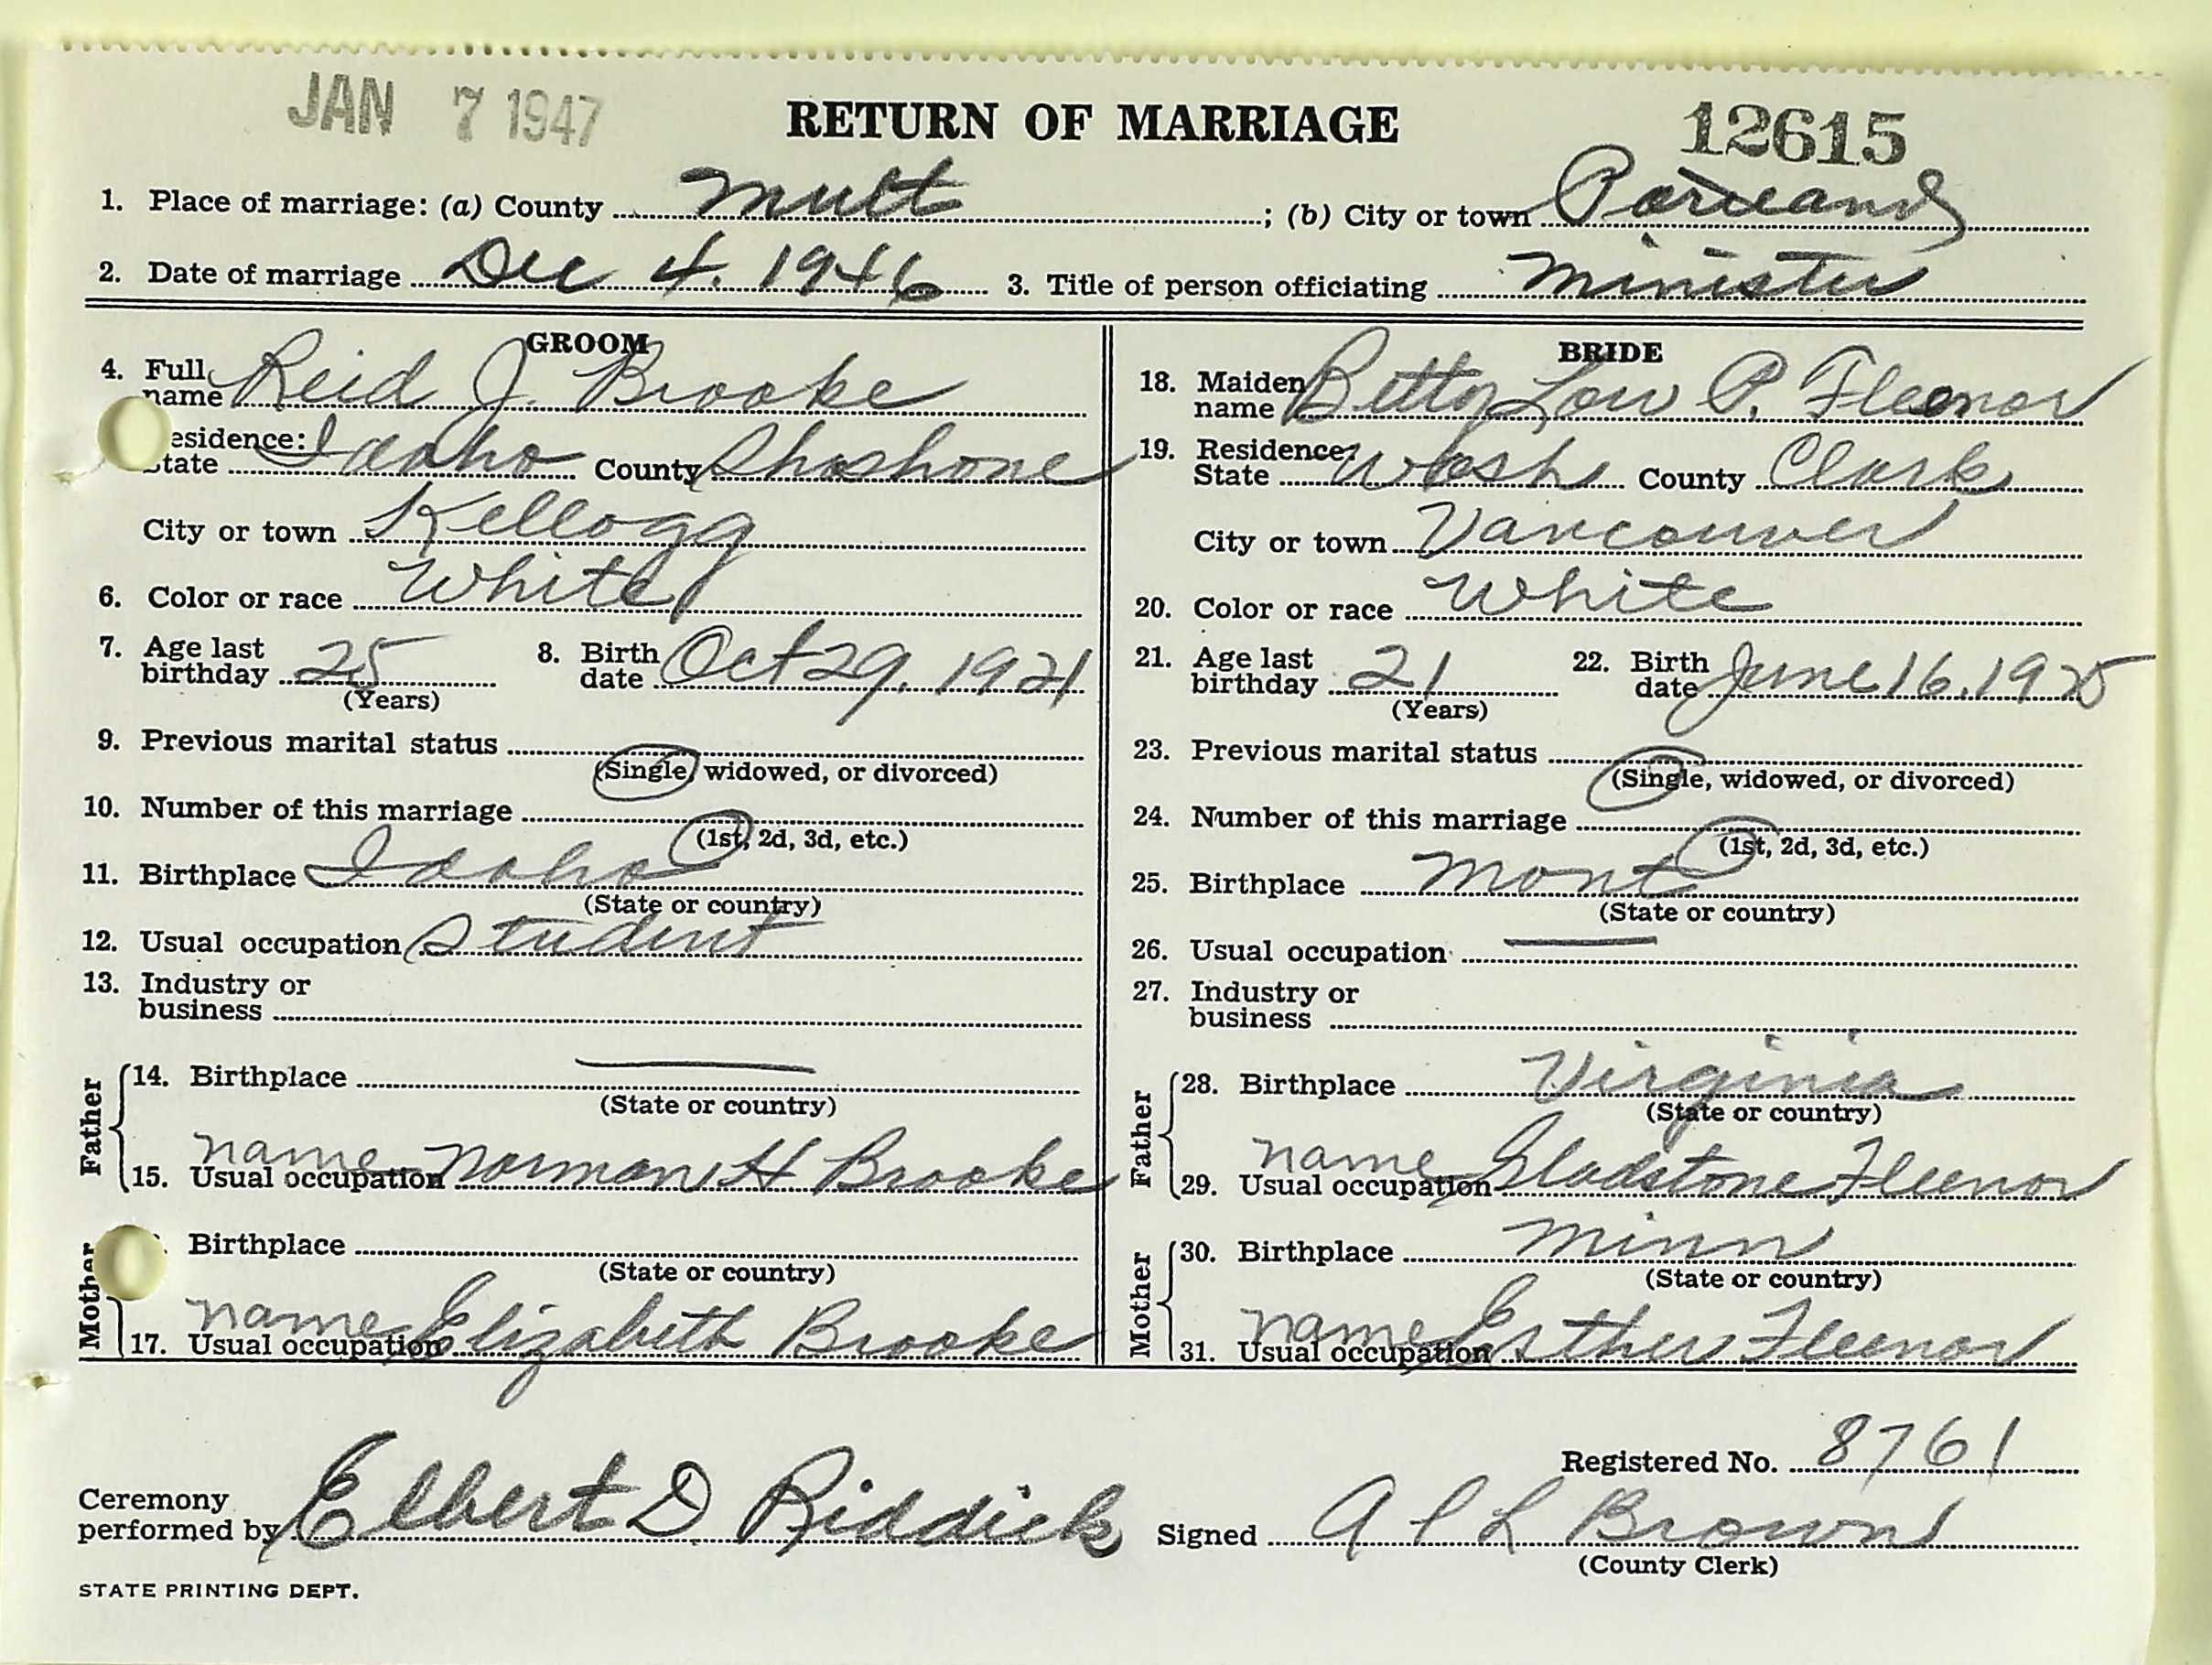 JAN 7 1947
RETURN OF MARRIAGE
12615
1. Place of marriage: (a) County Mult ; (b) City or town Portland
2. Date of marriage Dec 4. 1946 3. Title of person officiating Minister
GROOM
4. Full name Reid J. Brooke
esidence: State Idaho County Shoshone
City or town Kellogg
6. Color or race White
7. Age last birthday 25 (Years) 8. Birth date Oct 29, 1921
9. Previous marital status
(Single, widowed, or divorced)
10. Number of this marriage
(1st, 2d, 3d, etc.)
11. Birthplace Idaho
(State or country)
12. Usual occupation Student
13. Industry or business
Father
14. Birthplace —
(State or country)
name
15. Usual occupation Norman H Brooke
Mother
Birthplace
(State or country)
name
17. Usual occupation Elizabeth Brooke
BRIDE
18. Maiden name Betty Lou P. Fleenor
19. Residence: State Wash County Clark
City or town Vancouver
20. Color or race White
21. Age last birthday 21 (Years) 22. Birth date June 16, 1925
23. Previous marital status
(Single, widowed, or divorced)
24. Number of this marriage
(1st, 2d, 3d, etc.)
25. Birthplace Mont
(State or country)
26. Usual occupation —
27. Industry or business
Father
28. Birthplace Virginia
(State or country)
name
29. Usual occupation Gladstone Fleenor
Mother
30. Birthplace Minn
(State or country)
name
31. Usual occupation Esther Fleenor
Registered No. 8761
Ceremony performed by Elbert D Riddick
Signed A l L Brown
(County Clerk)
STATE PRINTING DEPT.